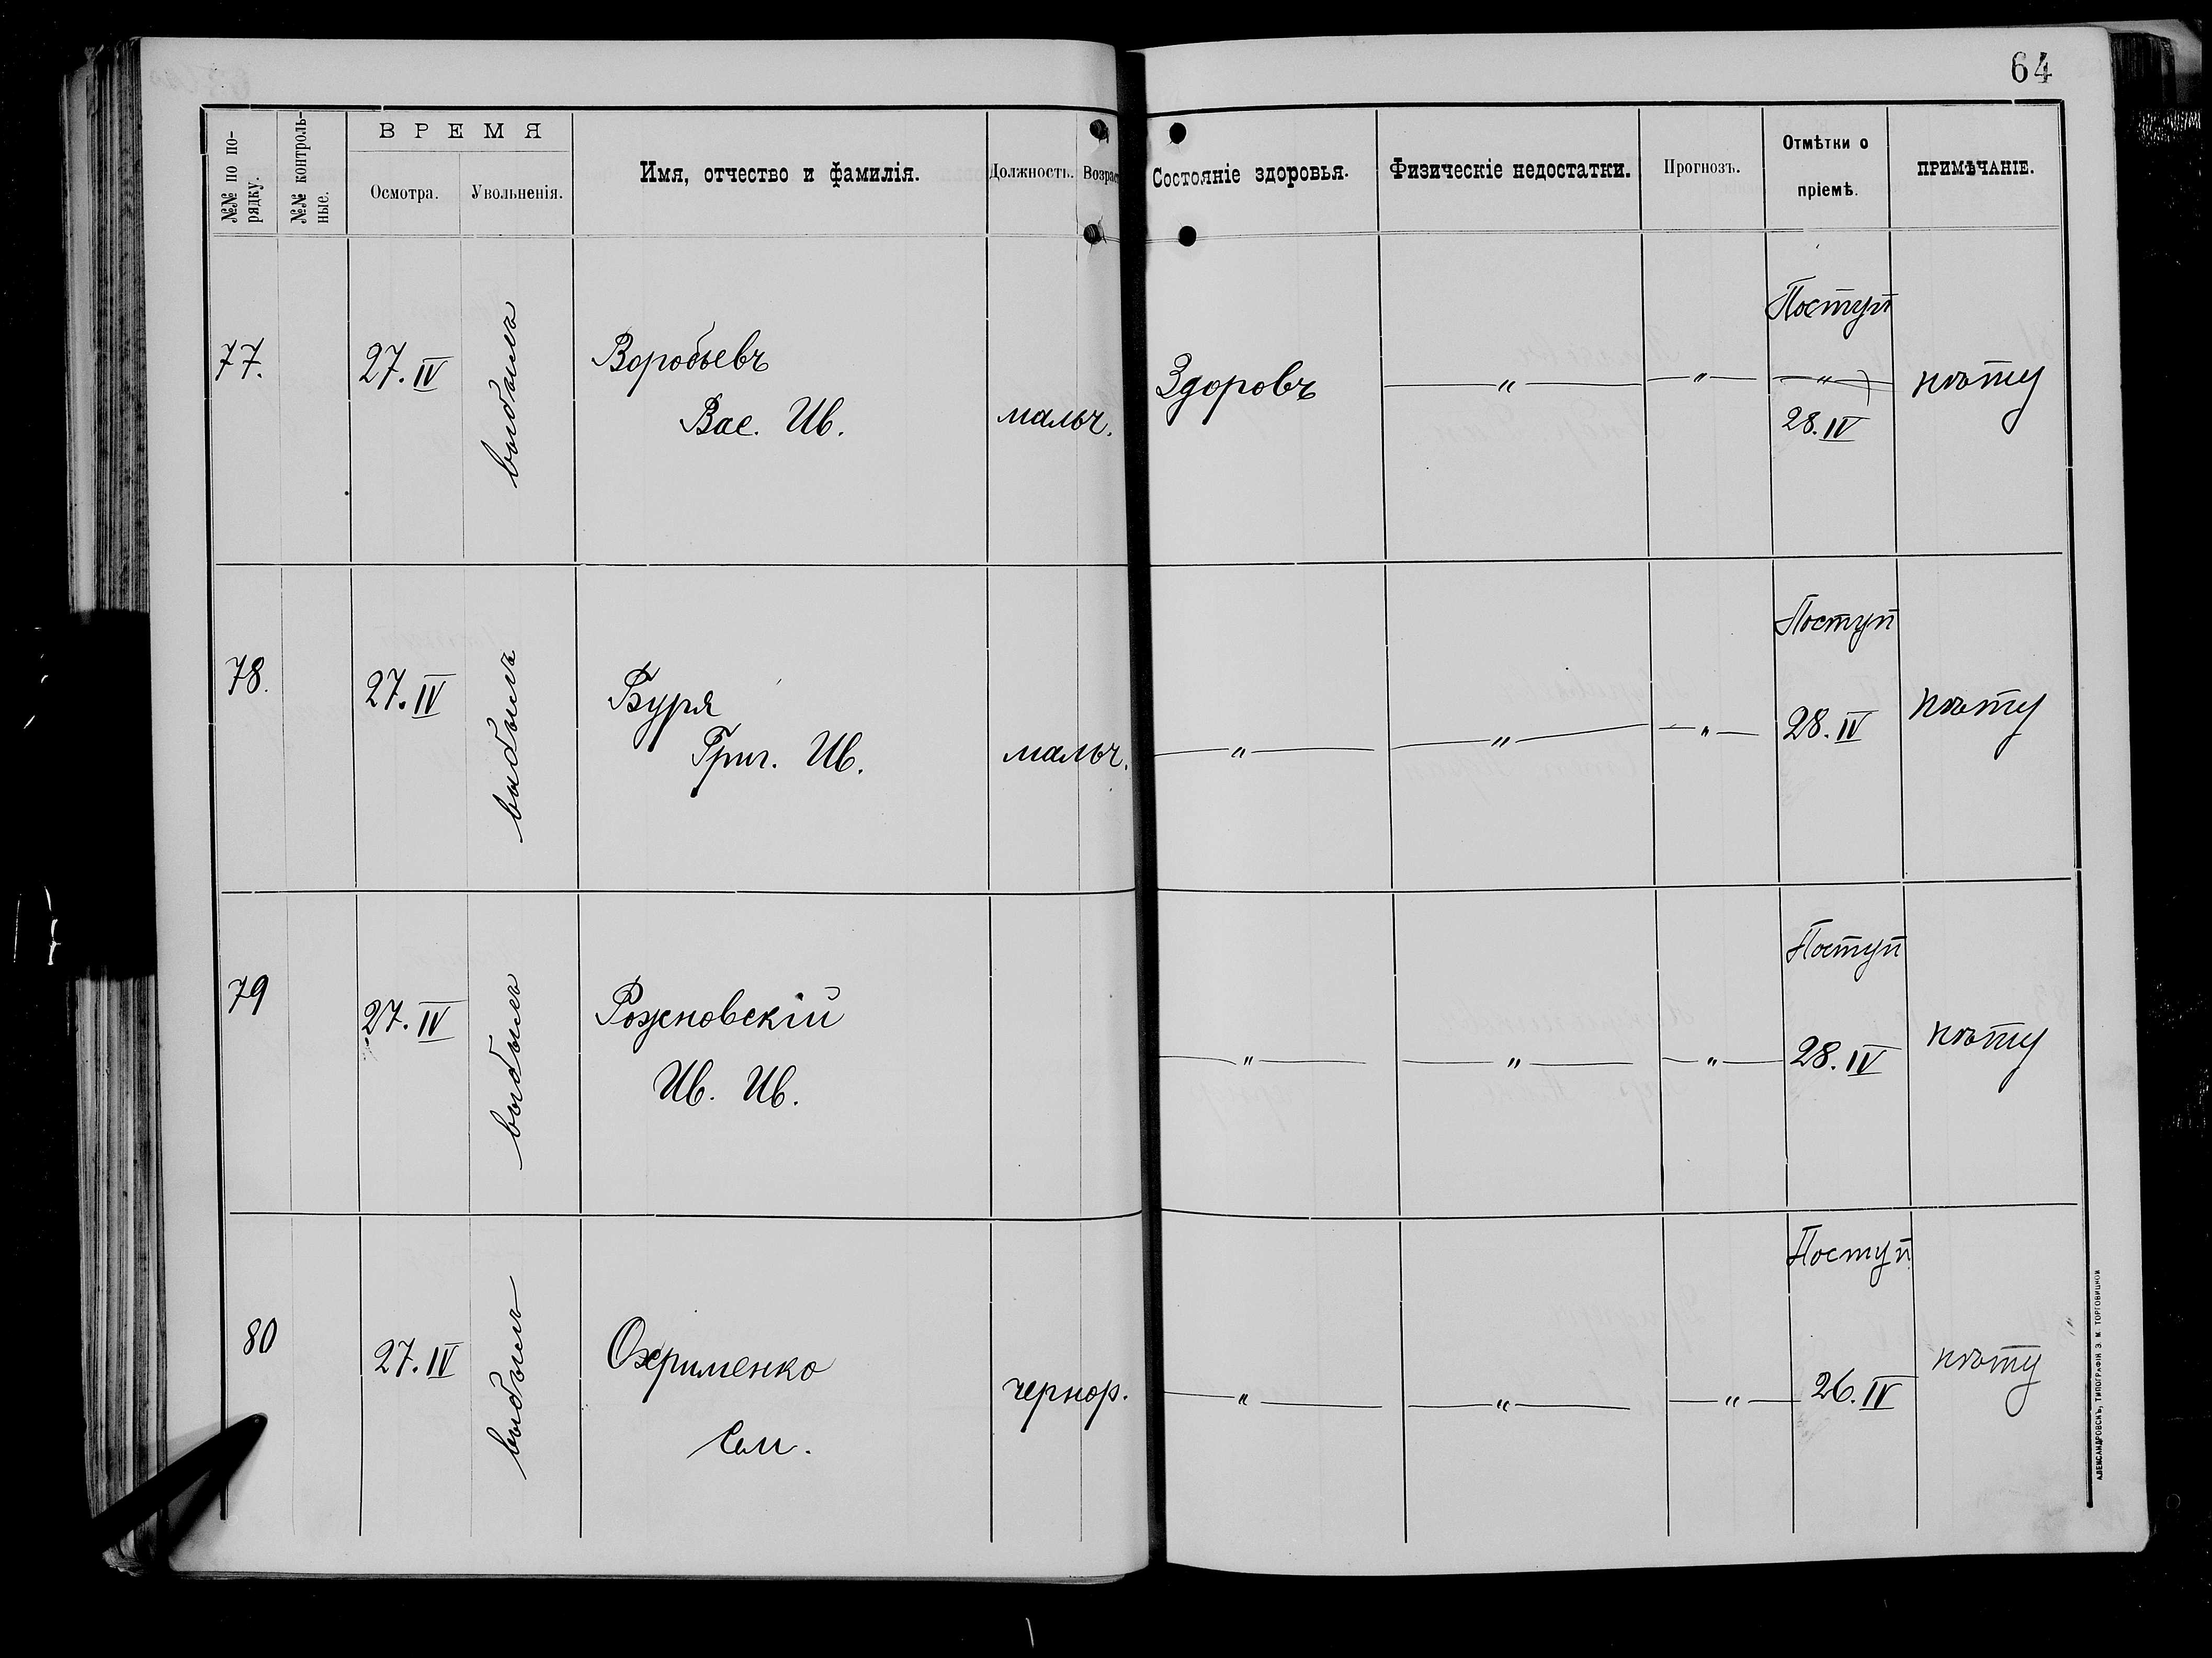 64
№№ по по-
рядку.
№№ контроль-
ные.
ВРЕМЯ
Осмотра.
Увольненія.
Имя, отчество и фамилія.
Должность.
Возраст
Состояніе здоровья.
Физическіе недостатки.
Прогнозъ.
Отмѣтки о
пріемѣ.
ПРИМѢЧАНІЕ.
77.
27.IV
выбылъ
Воробьевъ
Вас. Ив.
мальч.
Здоровъ
— " —
— " —
Поступ
— " —
28.IV
нѣту
78.
27.IV
выбылъ
Буря
Григ. Ив.
мальч.
— " —
— " —
— " —
Поступ
28.IV
нѣту
79
27.IV
выбылъ
Розновскій
Ив. Ив.
— " —
— " —
— " —
Поступ
28.IV
нѣту
80
27.IV
выбылъ
Охрименко
Сем.
чернор.
— " —
— " —
— " —
Поступ
26.IV
нѣту
АЛЕКСАНДРОВСКЪ, ТИПОГРАФІЯ Э. М. ТОРГОВИЦКОЙ